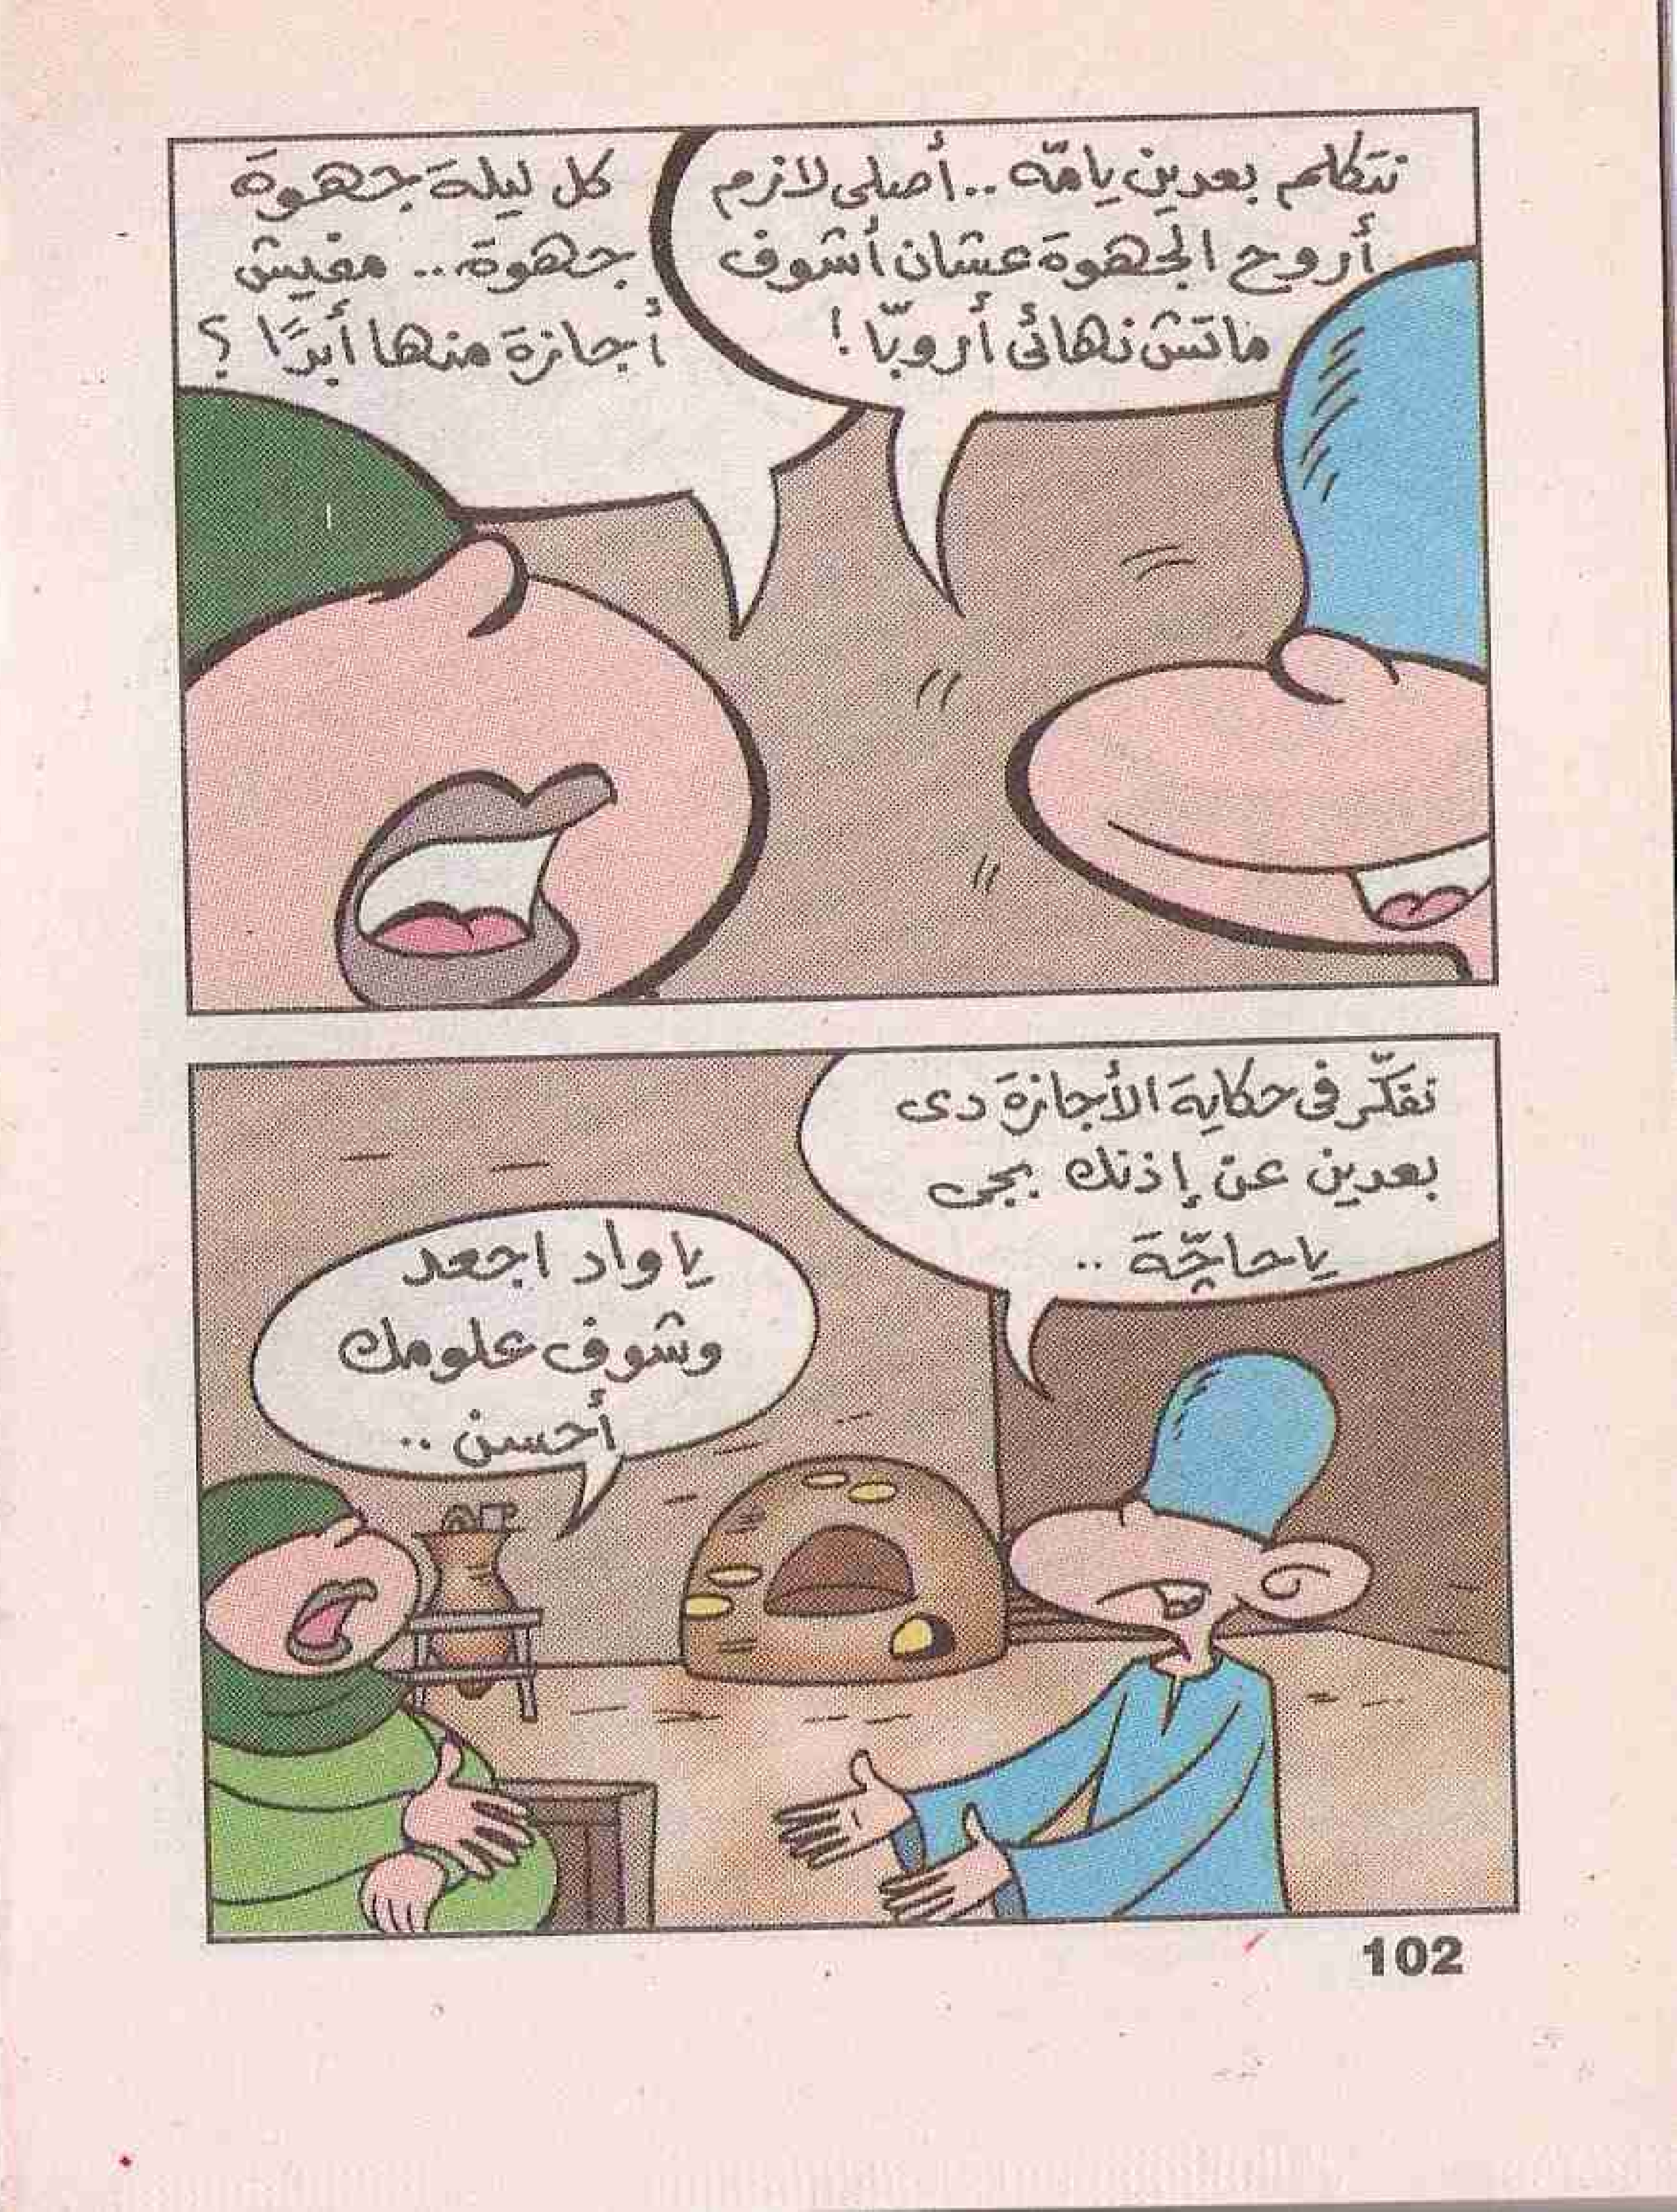 نتكلم بعدين يامّه .. أصلى لازم
أروح الجهوة عشان أشوف
ماتش نهائى أروبّا !
كل ليلة جهوة
جهوة .. مفيش
أجازة منها أبدًا ؟
نفكّر فى حكاية الأجازة دى
بعدين عن إذنك بجى
يا حاجّة ..
يا واد اجعد
وشوف علومك
أحسن ..
102